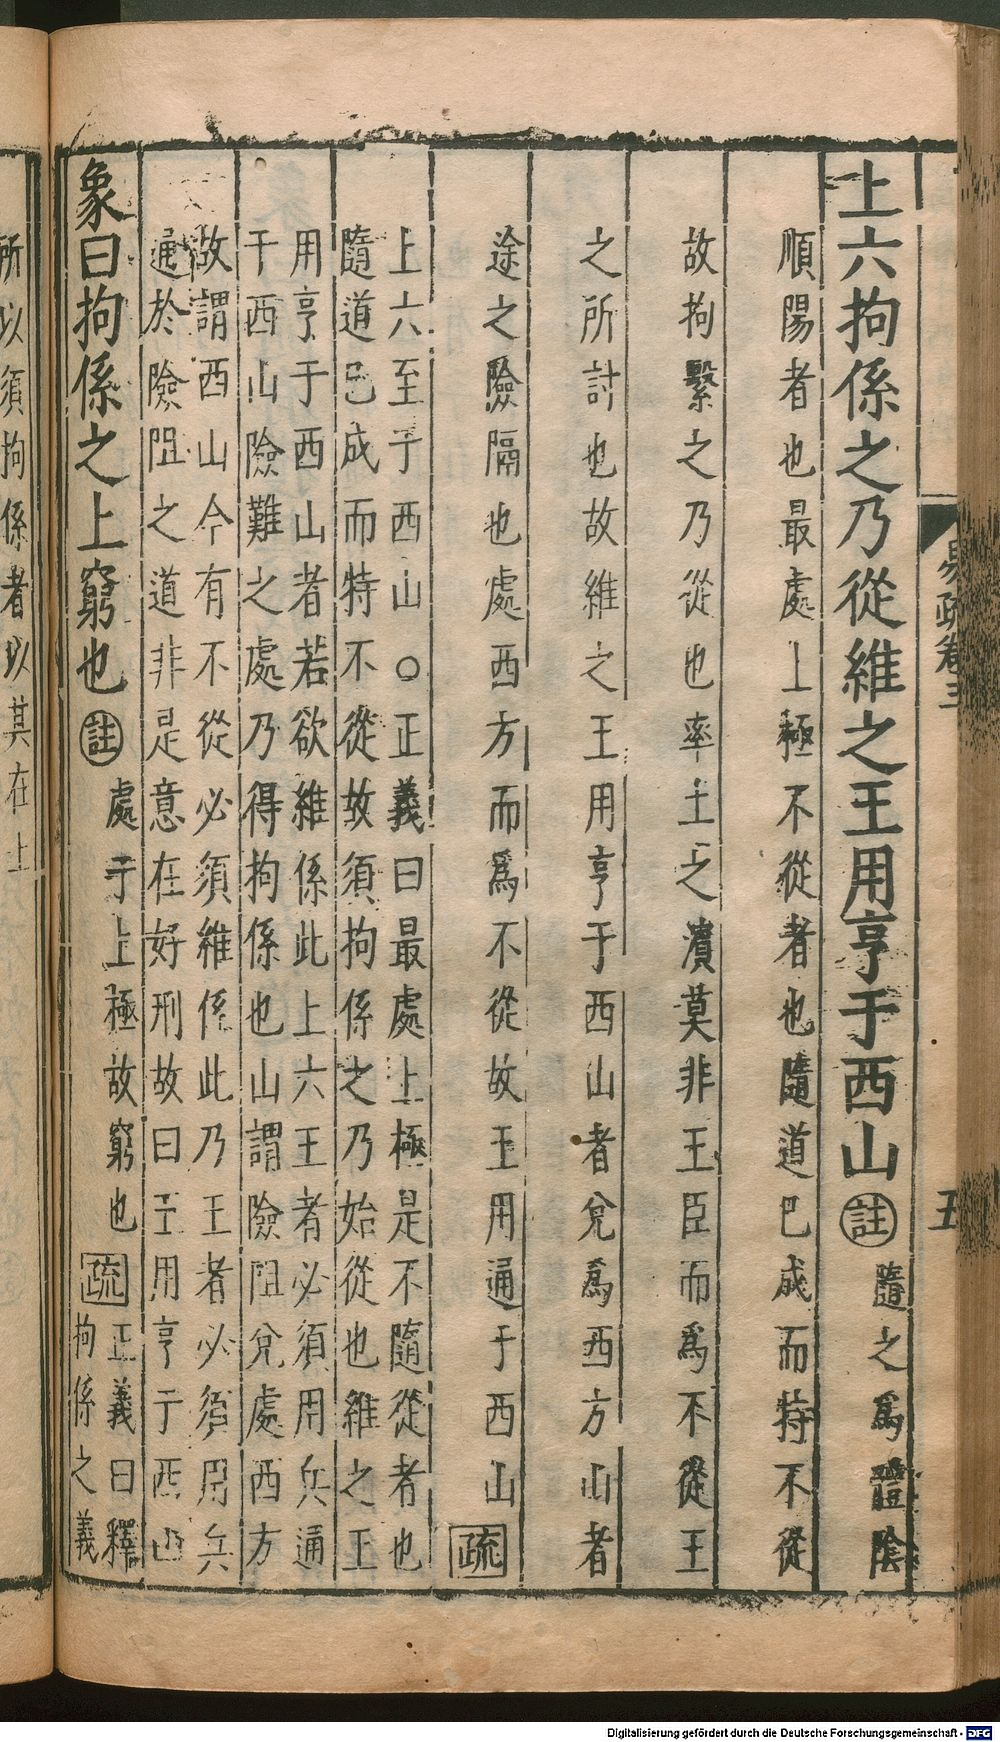 易疏卷三
五
上六拘係之乃從維之王用亨于西山註隨之爲體陰
順陽者也最處上極不從者也隨道已成而特不從
故拘繫之乃從也率土之濱莫非王臣而爲不從王
之所討也故維之王用亨于西山者兌爲西方山者
途之險隔也處西方而爲不從故王用通于西山疏
上六至于西山○正義曰最處上極是不隨從者也
隨道已成而特不從故須拘係之乃始從也維之王
用亨于西山者若欲維係此上六王者必須用兵通
于西山險難之處乃得拘係也山謂險阻兌處西方
故謂西山今有不從必須維係此乃王者必須用兵
通於險阻之道非是意在好刑故曰王用亨于西山
象曰拘係之上窮也註處于上極故窮也疏正義曰釋
拘係之義
所以須拘係者以其在上
Digitalisierung gefördert durch die Deutsche Forschungsgemeinschaft - DFG